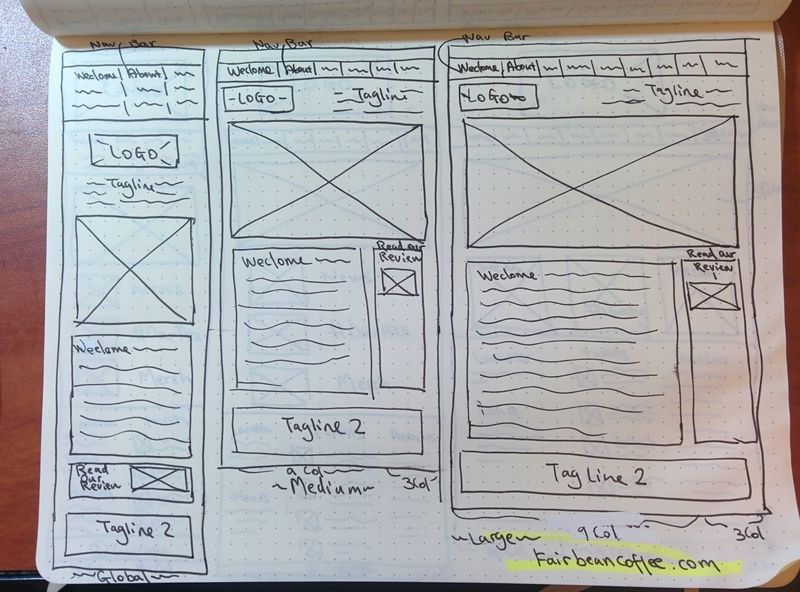 Nav Bar
Weclome About
LOGO
Tagline
Weclome
Read
Our
Review
Tagline 2
Global
Nav Bar
Weclome About
LOGO
Tagline
Weclome
Read our
Review
Tagline 2
9 Col
3Col
Medium
Nav Bar
Weclome About
LOGO
Tagline
Weclome
Read our
Review
Tag Line 2
Large
9 Col
3Col
Fairbeancoffee.com